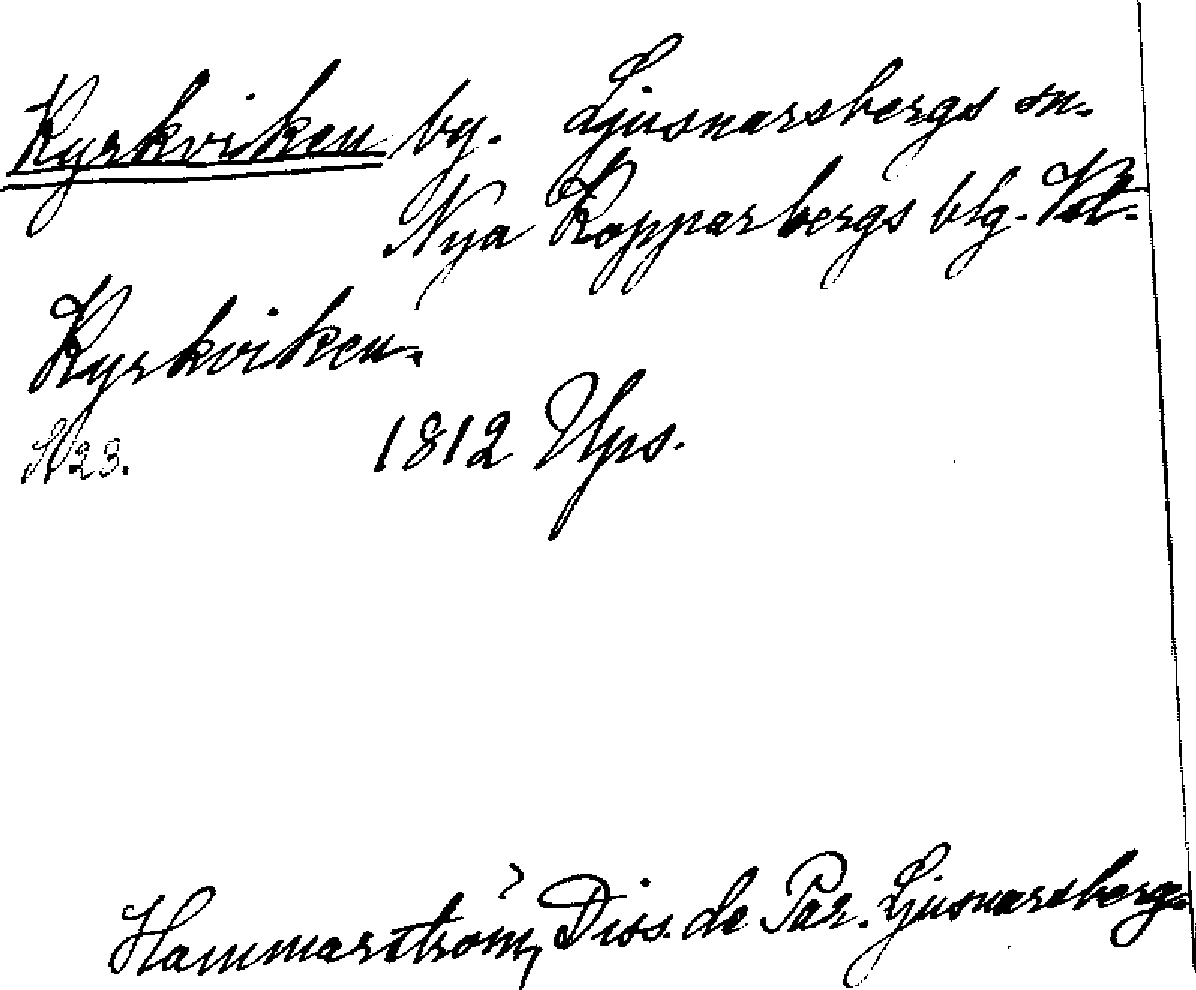 Kyrkviken by. Ljusnarsbergs sn.
Nya Kopparbergs blg. Vstl.
Kyrkviken.
S. 23. 1812 Ups.
Hammarström, Diss. de Par. Ljusnarsberg.